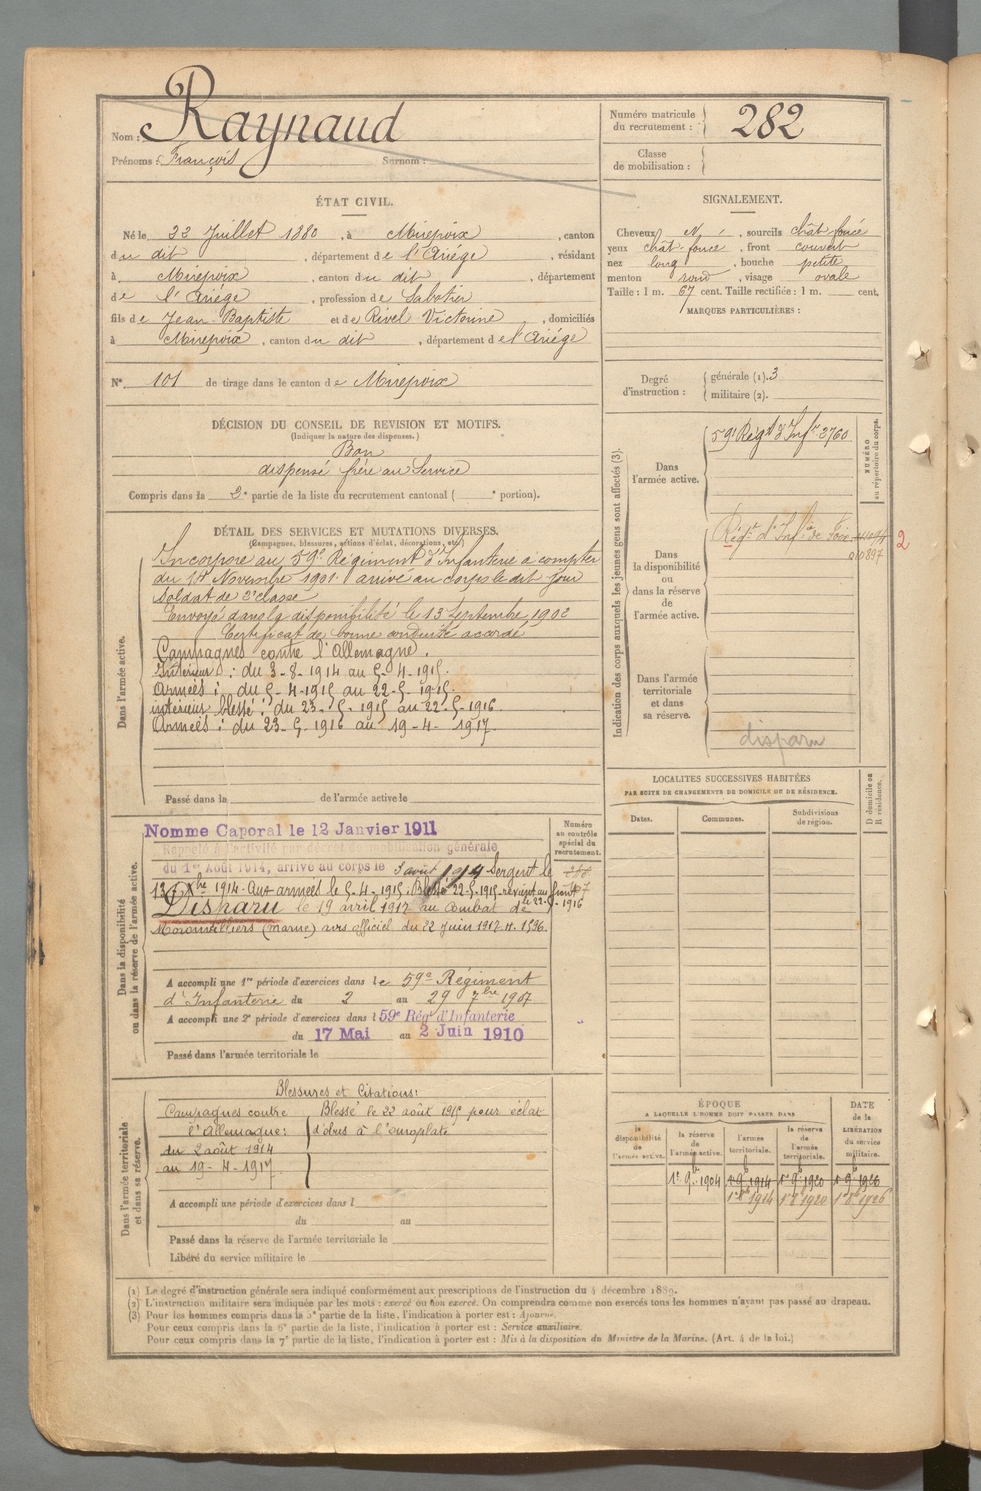 Nom : Raynaud
Prénoms : François Surnom :
Numéro matricule du recrutement : 282
Classe de mobilisation :
ÉTAT CIVIL.
Né le 22 Juillet 1880, à Mirepoix, canton
du dit, département de l'Ariége, résidant
à Mirepoix, canton du dit, département
de l'Ariége, profession de Sabotier
fils de Jean-Baptiste et de Rivel Victorine, domiciliés
à Mirepoix, canton du dit, département de l'Ariége
N° 101 de tirage dans le canton de Mirepoix
SIGNALEMENT.
Cheveux, sourcils chât-foncé
yeux chât-foncé, front couvert
nez long, bouche petite
menton rond, visage ovale
Taille : 1 m. 67 cent. Taille rectifiée : 1 m. cent.
MARQUES PARTICULIÈRES :
Degré d'instruction : générale (1). 3
militaire (2).
DÉCISION DU CONSEIL DE REVISION ET MOTIFS.
(Indiquer la nature des dispenses.)
Bon
dispensé frère au Service
Compris dans la 2e partie de la liste du recrutement cantonal ( e portion).
Indication des corps auxquels les jeunes gens sont affectés (3).
Dans l'armée active.
59e Regt d'Infie 2760
NUMÉRO au répertoire du corps.
Dans la disponibilité ou dans la réserve de l'armée active.
Régt d'Infie de Foix
010897
2
Dans l'armée territoriale et dans sa réserve.
disparu
DÉTAIL DES SERVICES ET MUTATIONS DIVERSES.
(Campagnes, blessures, actions d'éclat, décorations, etc.)
Dans l'armée active.
Incorporé au 59e Régiment d'Infanterie à compter
du 1er Novembre 1901. arrivé au corps le dit jour
Soldat de 2e classe
Envoyé dans la disponibilité le 13 Septembre 1902
Certificat de bonne conduite accordé
Campagnes contre l'Allemagne.
Intérieur : du 3-8-1914 au 5-4-1915.
Armées : du 5-4-1915 au 22-5-1915.
intérieur blessé : du 23-5-1915 au 22-5-1916.
Armées : du 23-5-1916 au 19-4-1917.
Passé dans la de l'armée active le
LOCALITES SUCCESSIVES HABITÉES
PAR SUITE DE CHANGEMENTS DE DOMICILE OU DE RÉSIDENCE.
D domicile ou R résidence.
Dates. Communes. Subdivisions de région.
Dans la disponibilité ou dans la réserve de l'armée active.
Numéro au contrôle spécial du recrutement.
Nommé Caporal le 12 Janvier 1911
Rappelé à l'activité par décret de mobilisation générale
du 1er Août 1914, arrivé au corps le 3 août 1914 Sergent le
12 Xbre 1914. Aux armées le 5-4-1915. Blessé 22-5-1915. revient au front
le 22-5-1916
Disparu le 19 avril 1917 au combat de
Moronvilliers (marne) avis officiel du 22 Juin 1917 n. 1596.
A accompli une 1re période d'exercices dans le 59e Régiment
d'Infanterie du 2 au 29 7bre 1907
A accompli une 2e période d'exercices dans l 59e Régt d'Infanterie
du 17 Mai au 2 Juin 1910
Passé dans l'armée territoriale le
Dans l'armée territoriale et dans sa réserve.
Blessures et Citations :
Campagnes contre
l'Allemagne :
du 2 août 1914
au 19-4-1917.
Blessé le 22 août 1915 pour éclat
d'obus à l'omoplate
A accompli une période d'exercices dans l
du au
Passé dans la réserve de l'armée territoriale le
Libéré du service militaire le
ÉPOQUE
A LAQUELLE L'HOMME DOIT PASSER DANS
DATE de la LIBÉRATION du service militaire.
la disponibilité de l'armée active. la réserve de l'armée active. l'armée territoriale. la réserve de l'armée territoriale.
1er 9b 1904 1er 9b 1914 1er 9b 1920 1er 9b 1926
1er 8b 1914 1er 8 1920 1er 8b 1926
(1) Le degré d'instruction générale sera indiqué conformément aux prescriptions de l'instruction du 4 décembre 1889.
(2) L'instruction militaire sera indiquée par les mots : exercé ou non exercé. On comprendra comme non exercés tous les hommes n'ayant pas passé au drapeau.
(3) Pour les hommes compris dans la 5e partie de la liste, l'indication à porter est : Ajourné.
Pour ceux compris dans la 6e partie de la liste, l'indication à porter est : Service auxiliaire.
Pour ceux compris dans la 7e partie de la liste, l'indication à porter est : Mis à la disposition du Ministre de la Marine. (Art. 4 de la loi.)